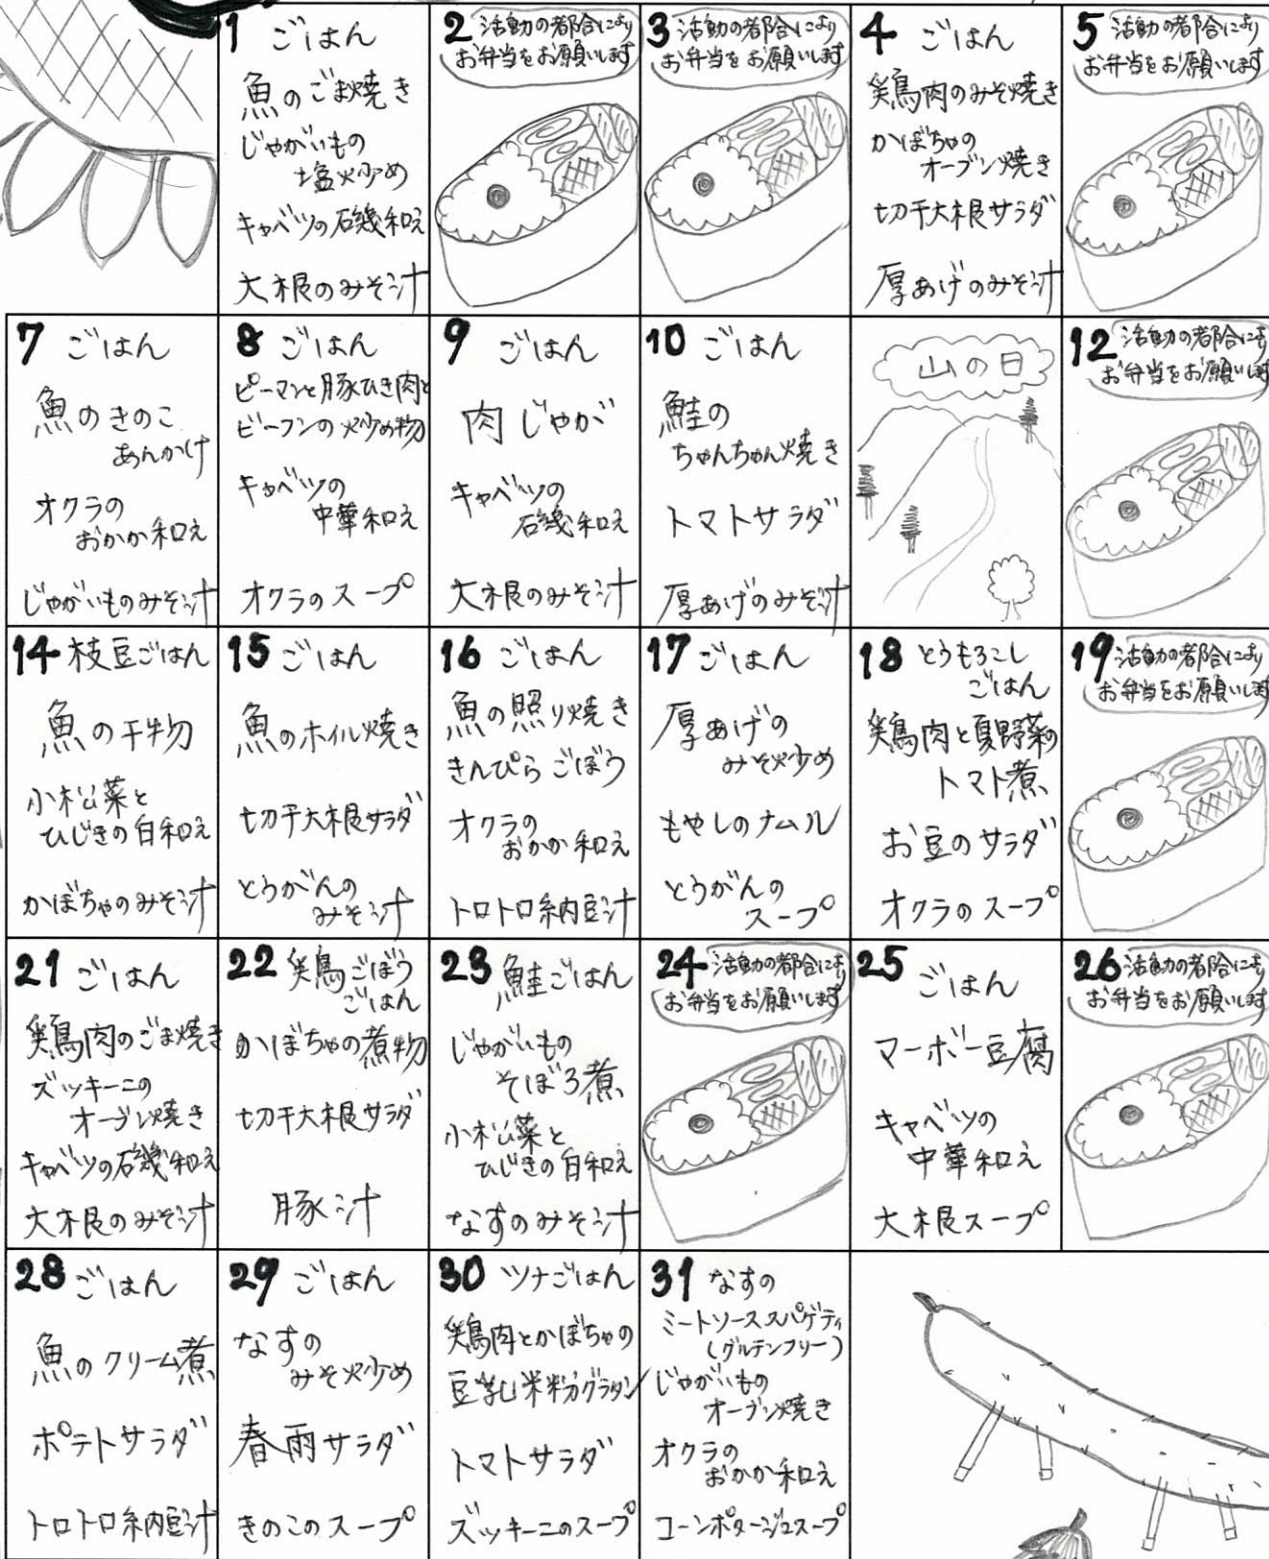 1 ごはん
魚のごま焼き
じゃがいもの
塩炒め
キャベツの磯和え
大根のみそ汁
2 活動の都合により
お弁当をお願いします
3 活動の都合により
お弁当をお願いします
4 ごはん
鶏肉のみそ焼き
かぼちゃの
オーブン焼き
切干大根サラダ
厚あげのみそ汁
5 活動の都合により
お弁当をお願いします
7 ごはん
魚のきのこ
あんかけ
オクラの
おかか和え
じゃがいものみそ汁
8 ごはん
ピーマンと豚ひき肉と
ビーフンの炒め物
キャベツの
中華和え
オクラのスープ
9 ごはん
肉じゃが
キャベツの
磯和え
大根のみそ汁
10 ごはん
鮭の
ちゃんちゃん焼き
トマトサラダ
厚あげのみそ汁
山の日
12 活動の都合により
お弁当をお願いします
14 枝豆ごはん
魚の干物
小松菜と
ひじきの白和え
かぼちゃのみそ汁
15 ごはん
魚のホイル焼き
切干大根サラダ
とうがんの
みそ汁
16 ごはん
魚の照り焼き
きんぴらごぼう
オクラの
おかか和え
トロトロ納豆汁
17 ごはん
厚あげの
みそ炒め
もやしのナムル
とうがんの
スープ
18 とうもろこし
ごはん
鶏肉と夏野菜の
トマト煮
お豆のサラダ
オクラのスープ
19 活動の都合により
お弁当をお願いします
21 ごはん
鶏肉のごま焼き
ズッキーニの
オーブン焼き
キャベツの磯和え
大根のみそ汁
22 鶏ごぼう
ごはん
かぼちゃの煮物
切干大根サラダ
豚汁
23 鮭ごはん
じゃがいもの
そぼろ煮
小松菜と
ひじきの白和え
なすのみそ汁
24 活動の都合により
お弁当をお願いします
25 ごはん
マーボー豆腐
キャベツの
中華和え
大根スープ
26 活動の都合により
お弁当をお願いします
28 ごはん
魚のクリーム煮
ポテトサラダ
トロトロ納豆汁
29 ごはん
なすの
みそ炒め
春雨サラダ
きのこのスープ
30 ツナごはん
鶏肉とかぼちゃの
豆乳米粉グラタン
トマトサラダ
ズッキーニのスープ
31 なすの
ミートソーススパゲティ
(グルテンフリー)
じゃがいもの
オーブン焼き
オクラの
おかか和え
コーンポタージュスープ